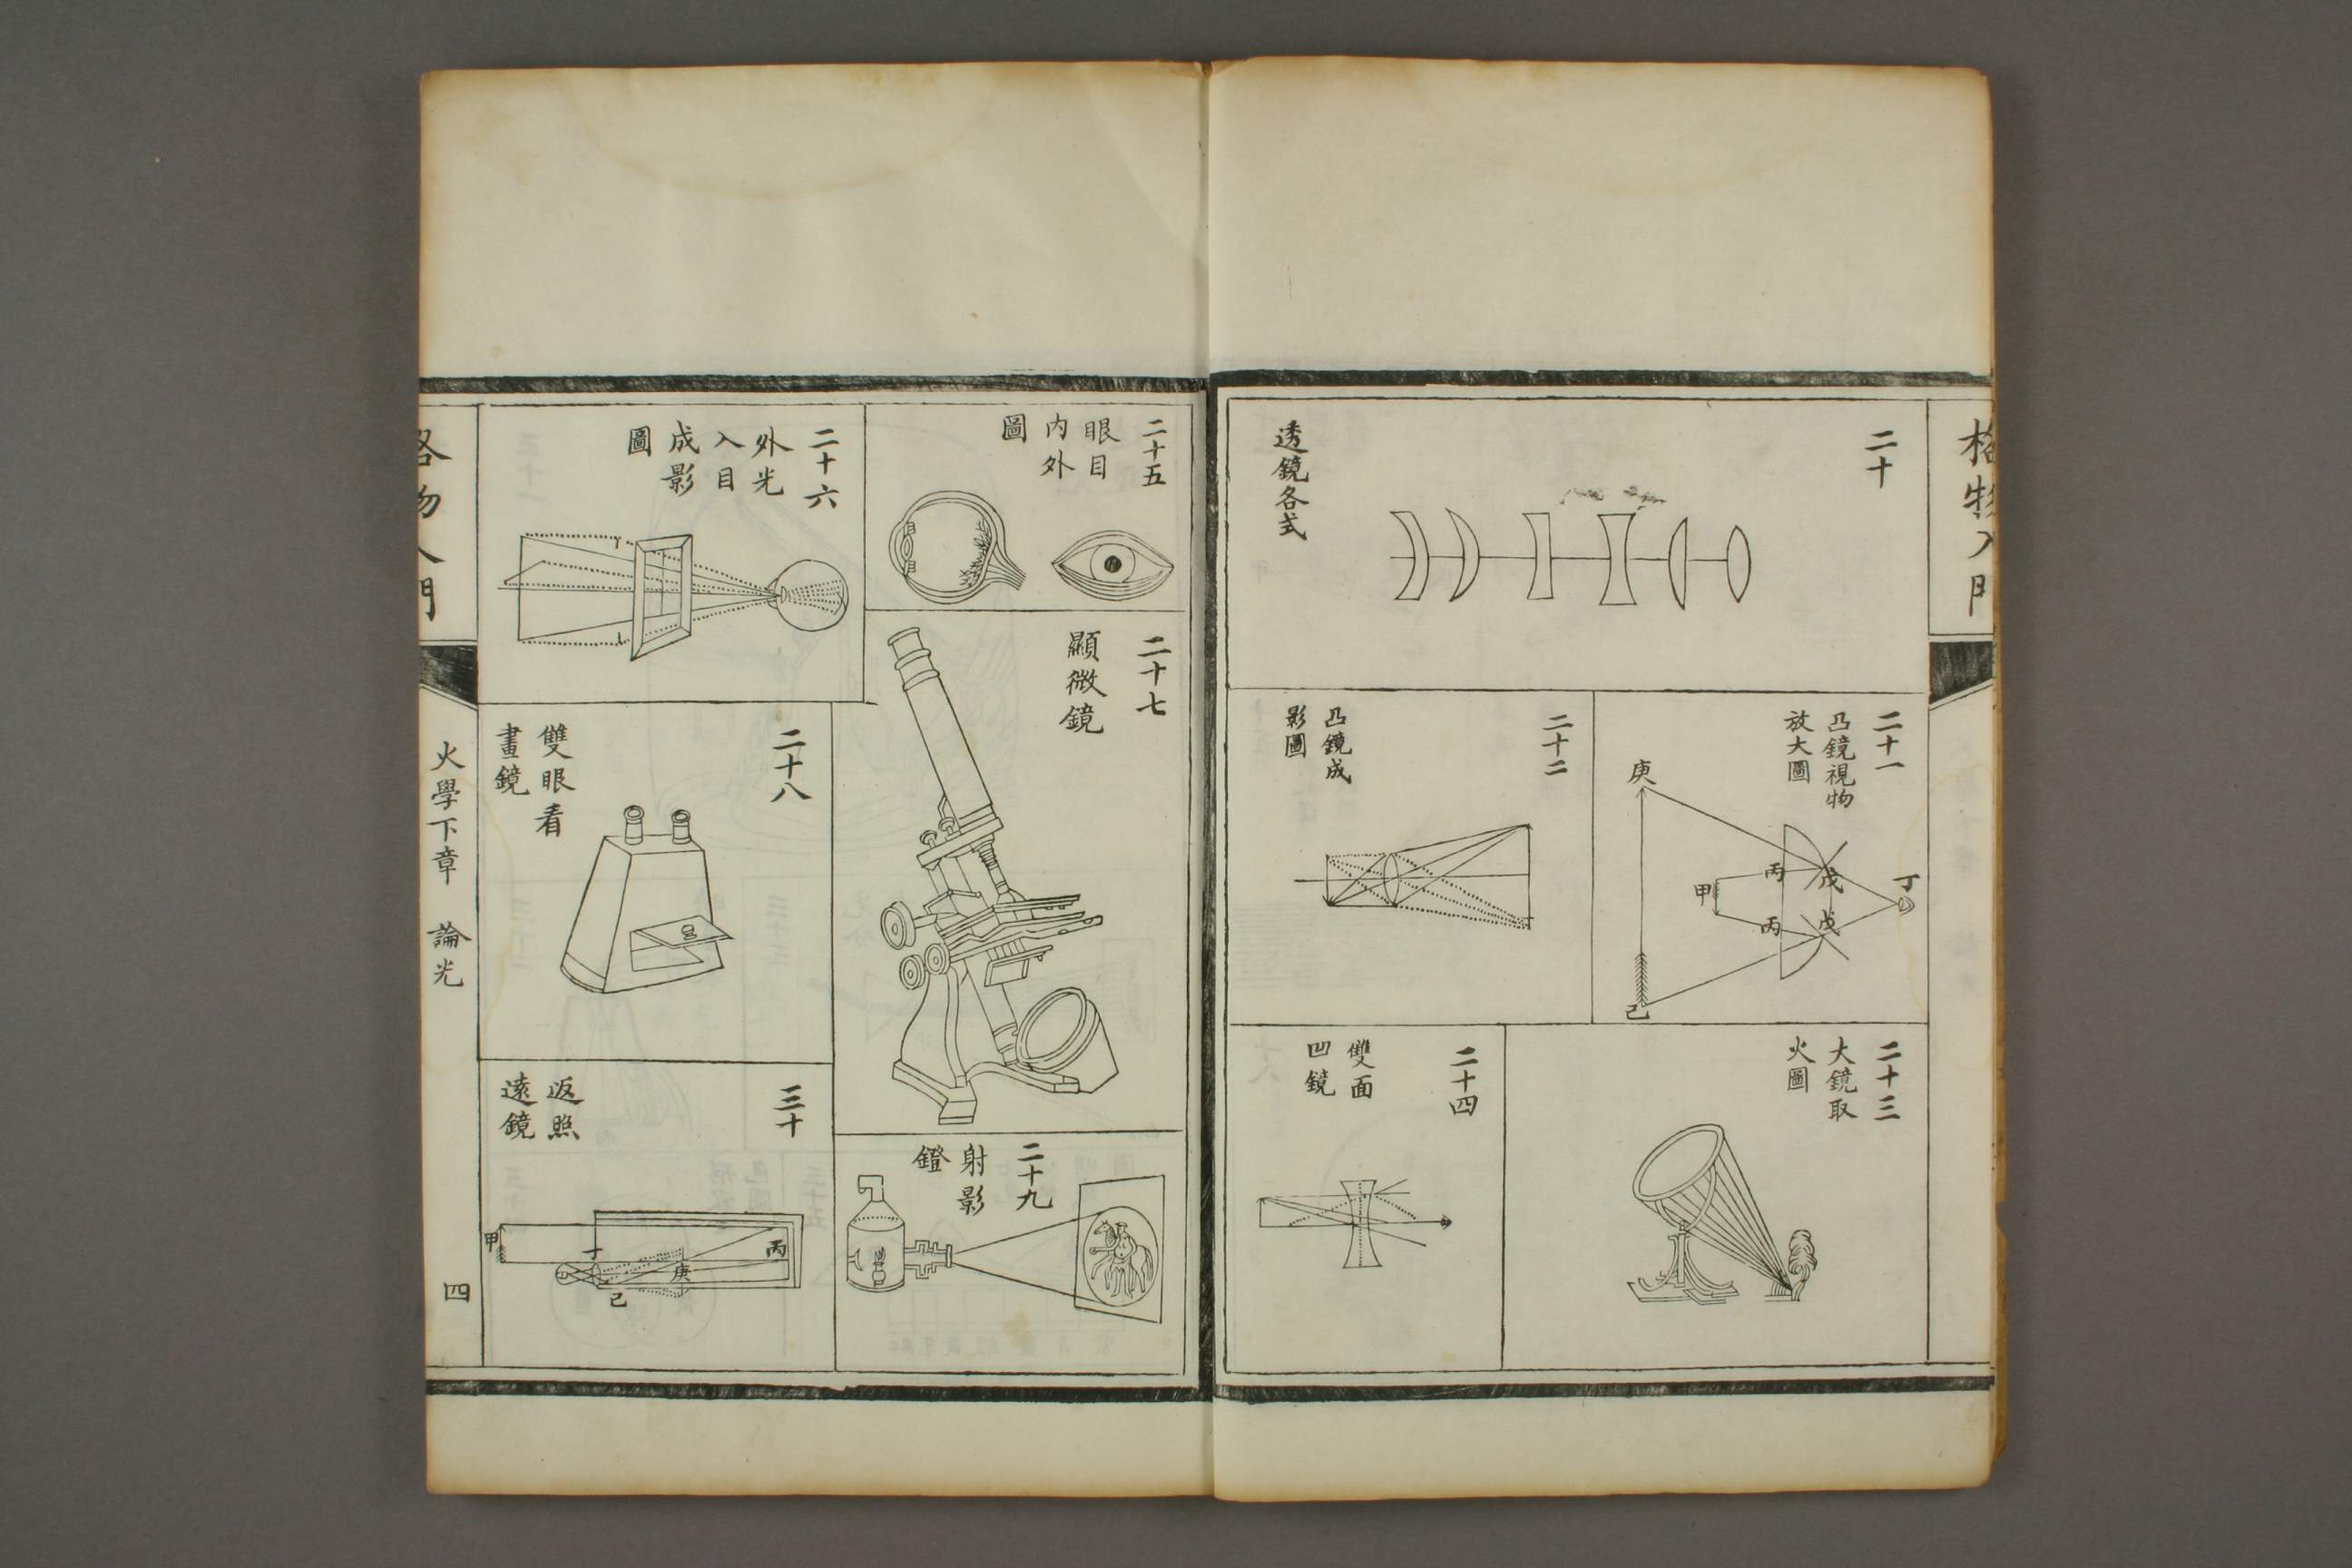 格物入門
二十
透鏡各式
二十一
凸鏡視物
放大圖
庚
甲
丙
丙
戊
戊
丁
己
二十二
凸鏡成
影圖
二十三
大鏡取
火圖
二十四
雙面
凹鏡
二十五
眼目
内外
圖
二十六
外光
入目
成影
圖
二十七
顯微鏡
二十八
雙眼看
畫鏡
二十九
射影
鐙
三十
返照
遠鏡
甲
丁
己
庚
丙
格物入門
火學下章 論光
四